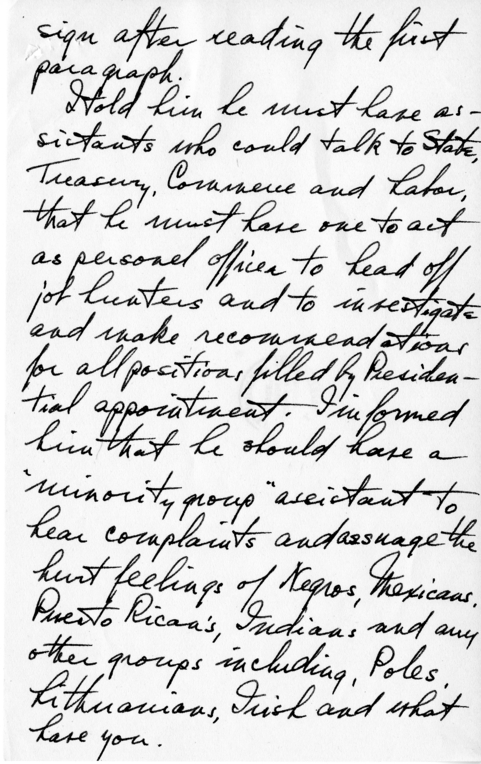 sign after reading the first
paragraph.
I told him he must have as-
sistants who could talk to State,
Treasury, Commerce and Labor,
that he must have one to act
as personel officer to head off
job hunters and to investigate
and make recommendations
for all positions filled by Presiden-
tial appointment. I informed
him that he should have a
"minority group" assistant to
hear complaints and assuage the
hurt feelings of Negros, Mexicans,
Puerto Rican's, Indians and any
other groups including, Poles,
Lithuanians, Irish and what
have you.